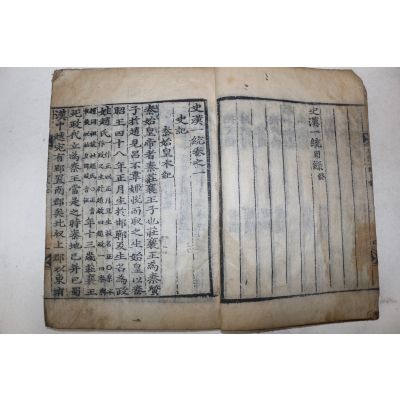 史漢一統目錄 終
史漢一統卷之一
史記
秦始皇本記
秦始皇帝者秦莊襄王子也莊襄王為秦質
子於趙見呂不韋姬悅而取之生始皇以秦
昭王四十八年正月生於邯鄲及生名為政
姓趙氏
年十三歲莊襄王
死政代立為秦王當是之時秦地已并巴蜀
漢中越宛有郢置南郡矣北收上郡以東南